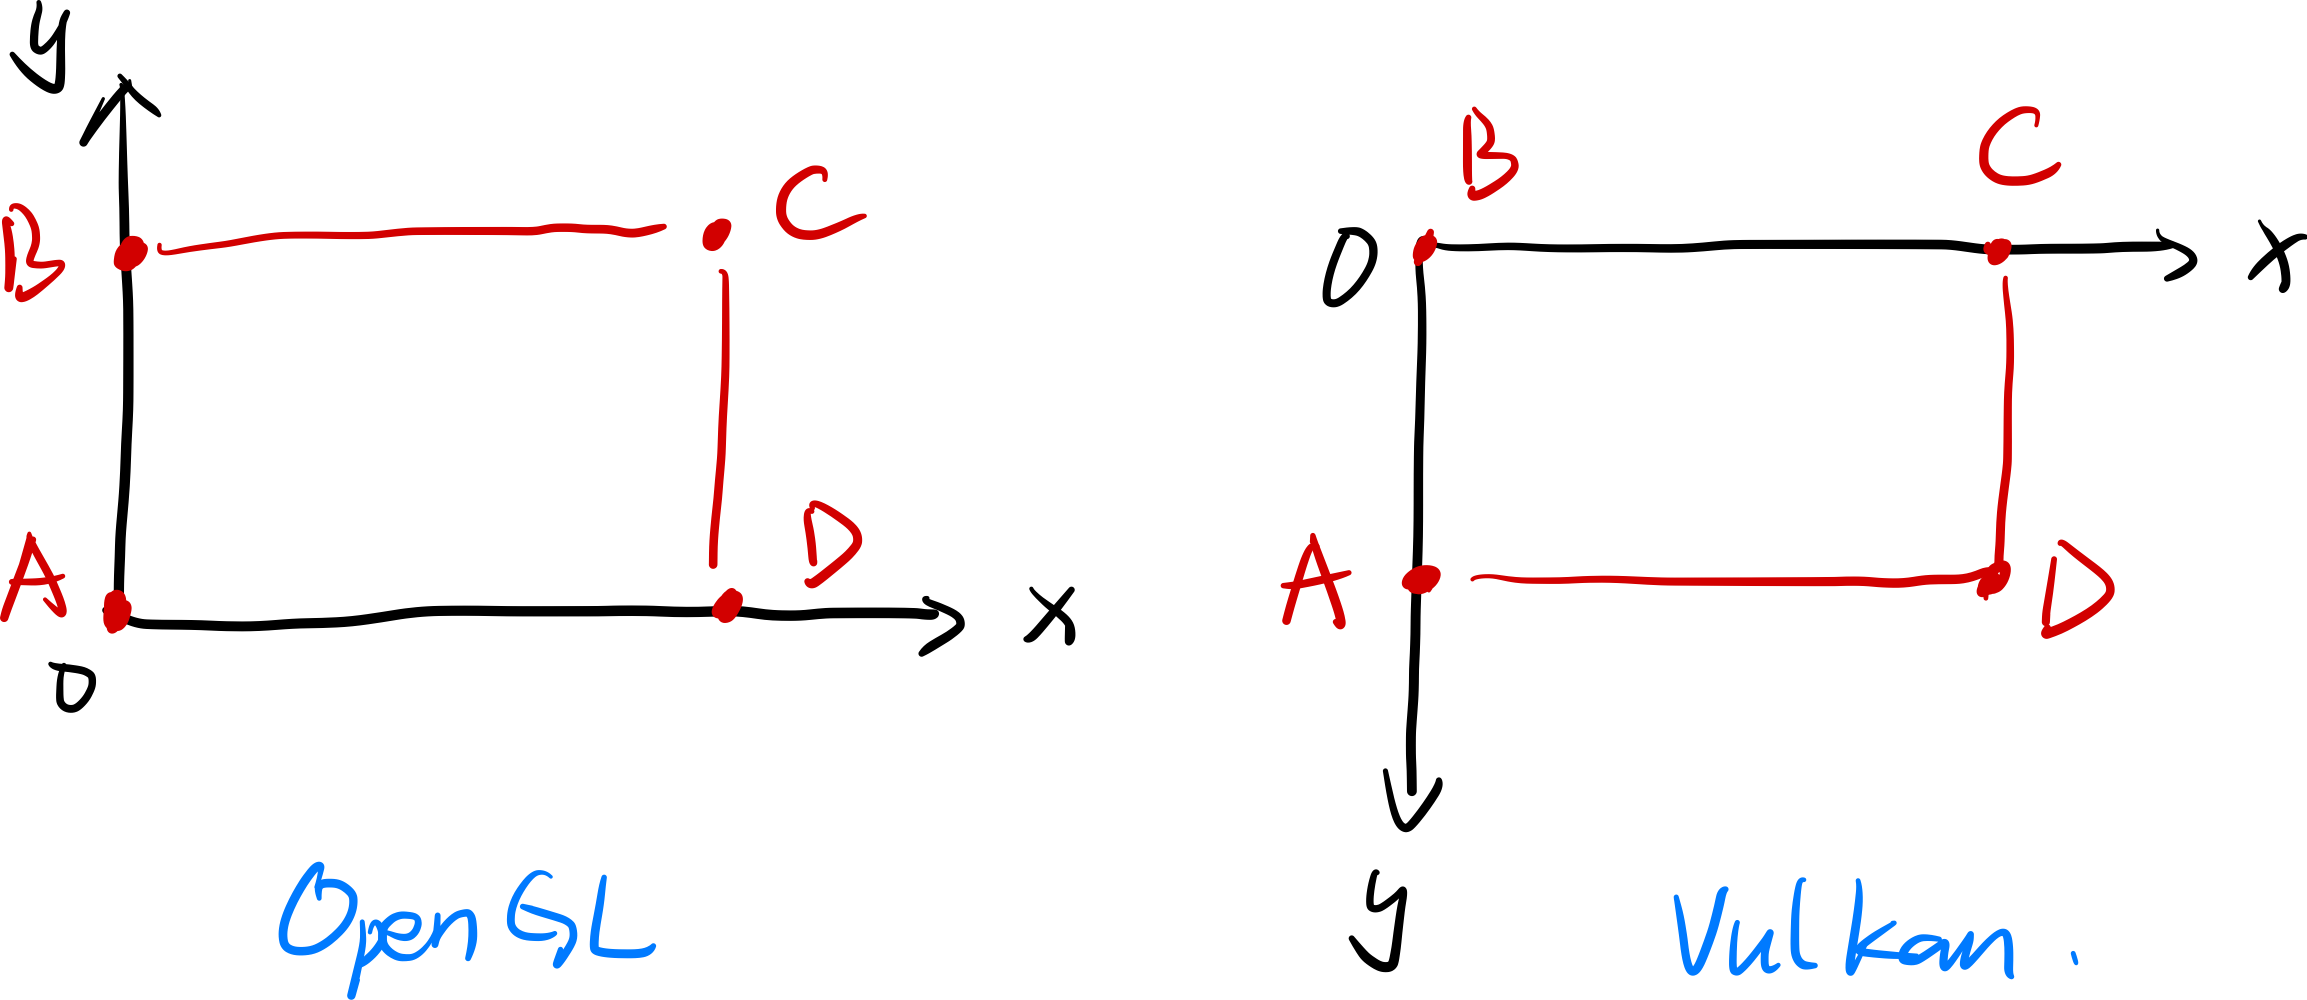 y
B
C
A
D
x
0
OpenGL
B
C
0
x
A
D
y
Vulkan.